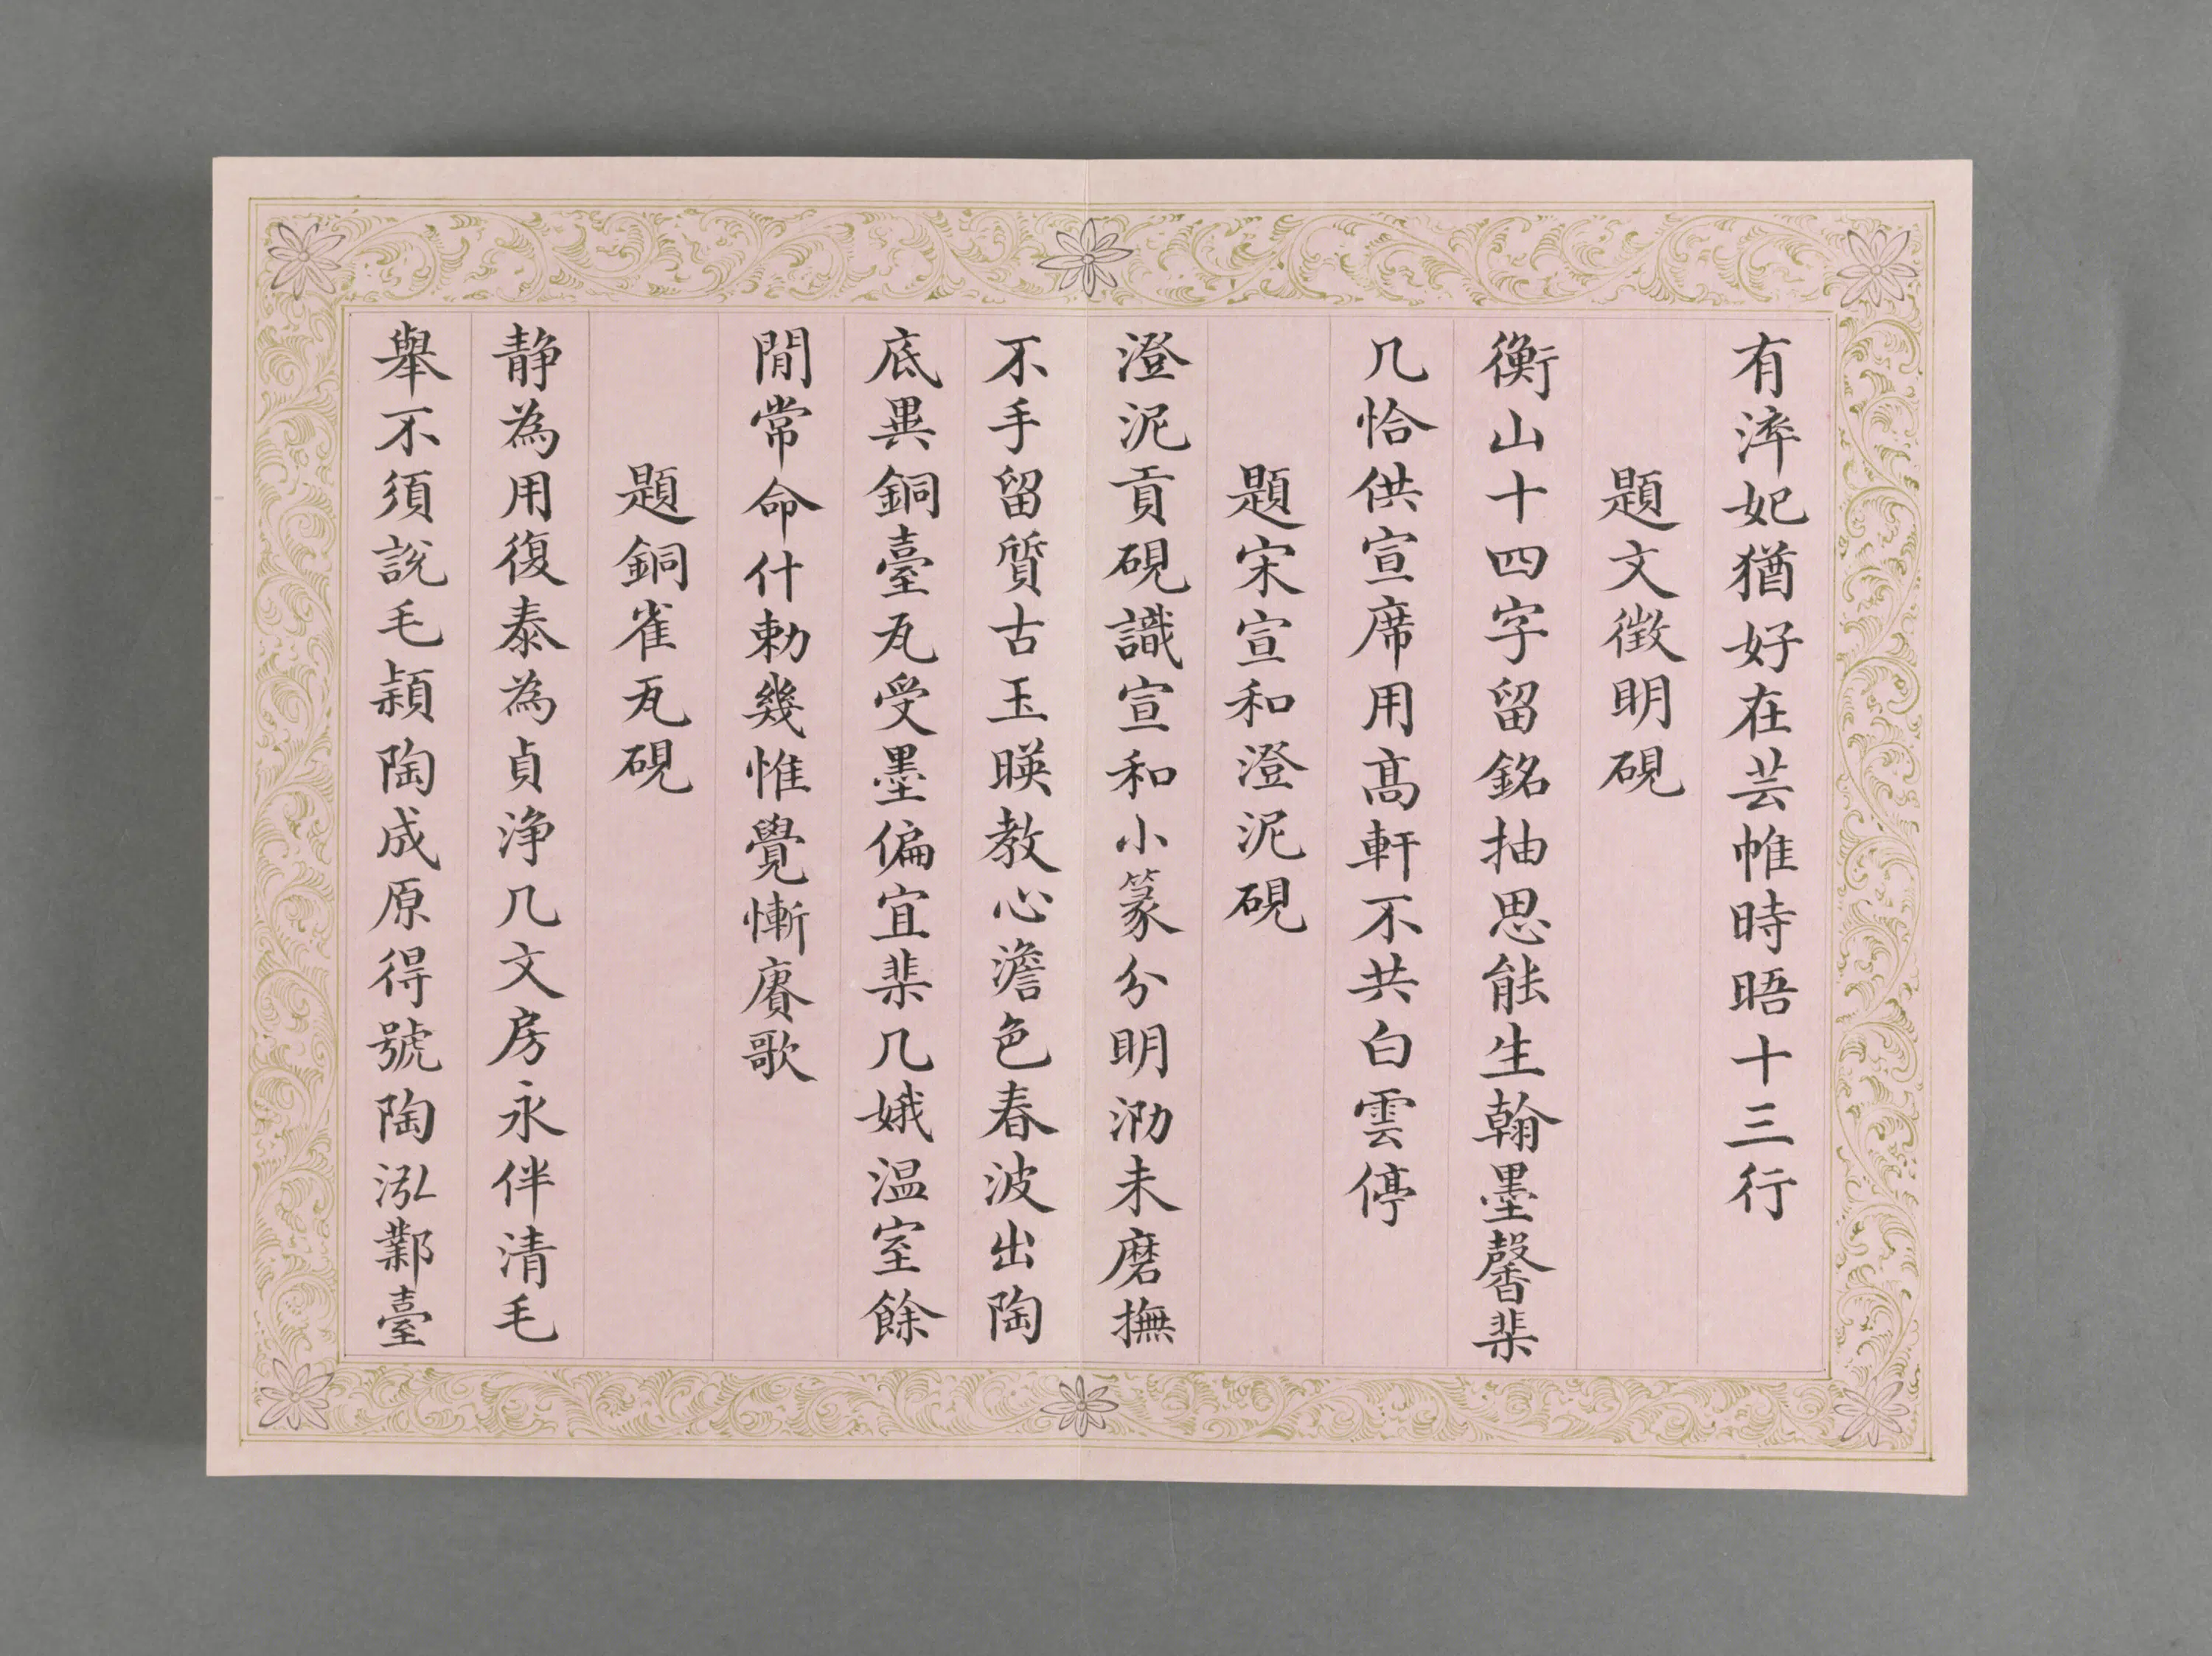 有淬妃猶好在芸帷時晤十三行
題文徵明硯
衡山十四字留銘抽思能生翰墨馨棐
几恰供宣席用髙軒不共白雲停
題宋宣和澄泥硯
澄泥貢硯識宣和小篆分明泐未磨撫
不手留質古玉暎教心澹色春波出陶
底異銅臺瓦受墨偏宜棐几娥温室餘
閒常命什勅幾惟覺慚賡歌
題銅雀瓦硯
静為用復泰為貞浄几文房永伴清毛
舉不須說毛穎陶成原得號陶泓鄴臺